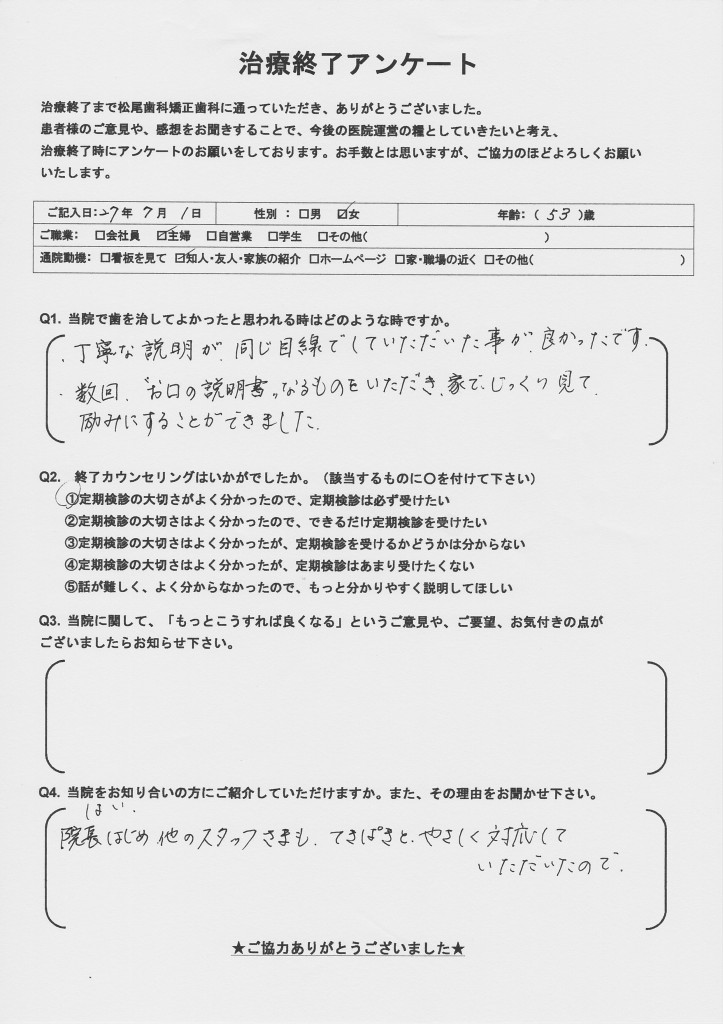 治療終了アンケート
治療終了まで松尾歯科矯正歯科に通っていただき、ありがとうございました。
患者様のご意見や、感想をお聞きすることで、今後の医院運営の糧としていきたいと考え、
治療終了時にアンケートのお願いをしております。お手数とは思いますが、ご協力のほどよろしくお願い
いたします。
ご記入日:27年 7月 1日 性別 : □男 ☑女 年齢:( 53 )歳
ご職業: □会社員 ☑主婦 □自営業 □学生 □その他( )
通院動機: □看板を見て ☑知人・友人・家族の紹介 □ホームページ □家・職場の近く □その他( )
Q1. 当院で歯を治してよかったと思われる時はどのような時ですか。
・丁寧な説明が、同じ目線でしていただいた事が、良かったです。
・数回、〝お口の説明書〟なるものをいただき、家で、じっくり見て、
励みにすることができました。
Q2. 終了カウンセリングはいかがでしたか。(該当するものに〇を付けて下さい)
①定期検診の大切さがよく分かったので、定期検診は必ず受けたい
②定期検診の大切さはよく分かったので、できるだけ定期検診を受けたい
③定期検診の大切さはよく分かったが、定期検診を受けるかどうかは分からない
④定期検診の大切さはよく分かったが、定期検診はあまり受けたくない
⑤話が難しく、よく分からなかったので、もっと分かりやすく説明してほしい
Q3. 当院に関して、「もっとこうすれば良くなる」というご意見や、ご要望、お気付きの点が
ございましたらお知らせ下さい。
Q4. 当院をお知り合いの方にご紹介していただけますか。また、その理由をお聞かせ下さい。
はい.
院長はじめ他のスタッフさまも、てきぱきと、やさしく対応して
いただいたので、
★ご協力ありがとうございました★